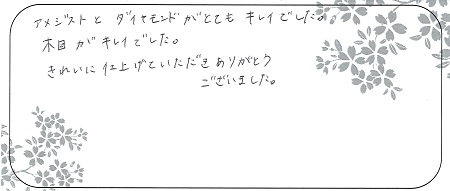 アメジストと ダイヤモンドがとても キレイでした。
木目がキレイでした。
きれいに仕上げていただきありがとう
ございました。